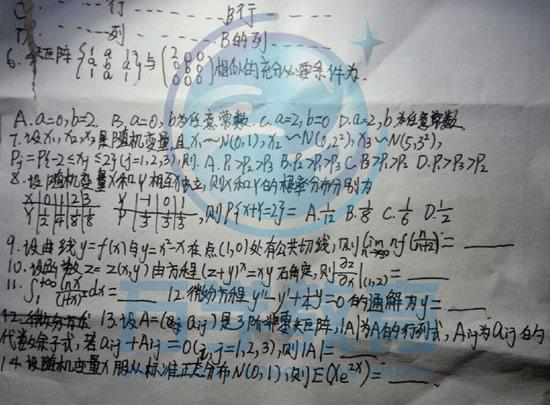 C. 行 B行
D. 列 B的列
6. 矩阵 (1 a 1 / a b a / 1 a 1) 与 (2 0 0 / 0 b 0 / 0 0 0) 相似的充分必要条件为.
A. a=0, b=2 B. a=0, b为任意常数 C. a=2, b=0 D. a=2, b为任意常数
7. 设X₁, X₂, X₃是随机变量, 且X₁~N(0,1), X₂~N(0,2²), X₃~N(5,3²),
Pj=P{-2≤Xj≤2}(j=1,2,3), 则. A. P₁>P₂>P₃ B. P₂>P₁>P₃ C. P₃>P₁>P₂ D. P₁>P₃>P₂
8. 设随机变量X和Y相互独立, 则X和Y的概率分布分别为
X 0 1 2 3 Y -1 0 1
P 1/2 1/4 1/8 1/8 P 1/3 1/3 1/3 , 则P{X+Y=2}= A. 1/12 B. 1/8 C. 1/6 D. 1/2
9. 设曲线y=f(x)与y=x²-x在点(1,0)处有公共切线, 则 lim n→∞ nf(n/(n+2))=
10. 设函数z=z(x,y)由方程(z+y)ˣ=xy确定, 则∂z/∂x|(1,2)=
11. ∫₁^{+∞} lnx/(1+x)² dx= 12. 微分方程y''-y'+¼y=0的通解为y=
12. 微分方 13. 设A=(aij)是3阶非零矩阵, |A|为A的行列式, Aij为aij的
代数余子式, 若aij+Aij=0(i,j=1,2,3), 则|A|=
14. 设随机变量X服从标准正态分布N(0,1), 则E(Xe²ˣ)=